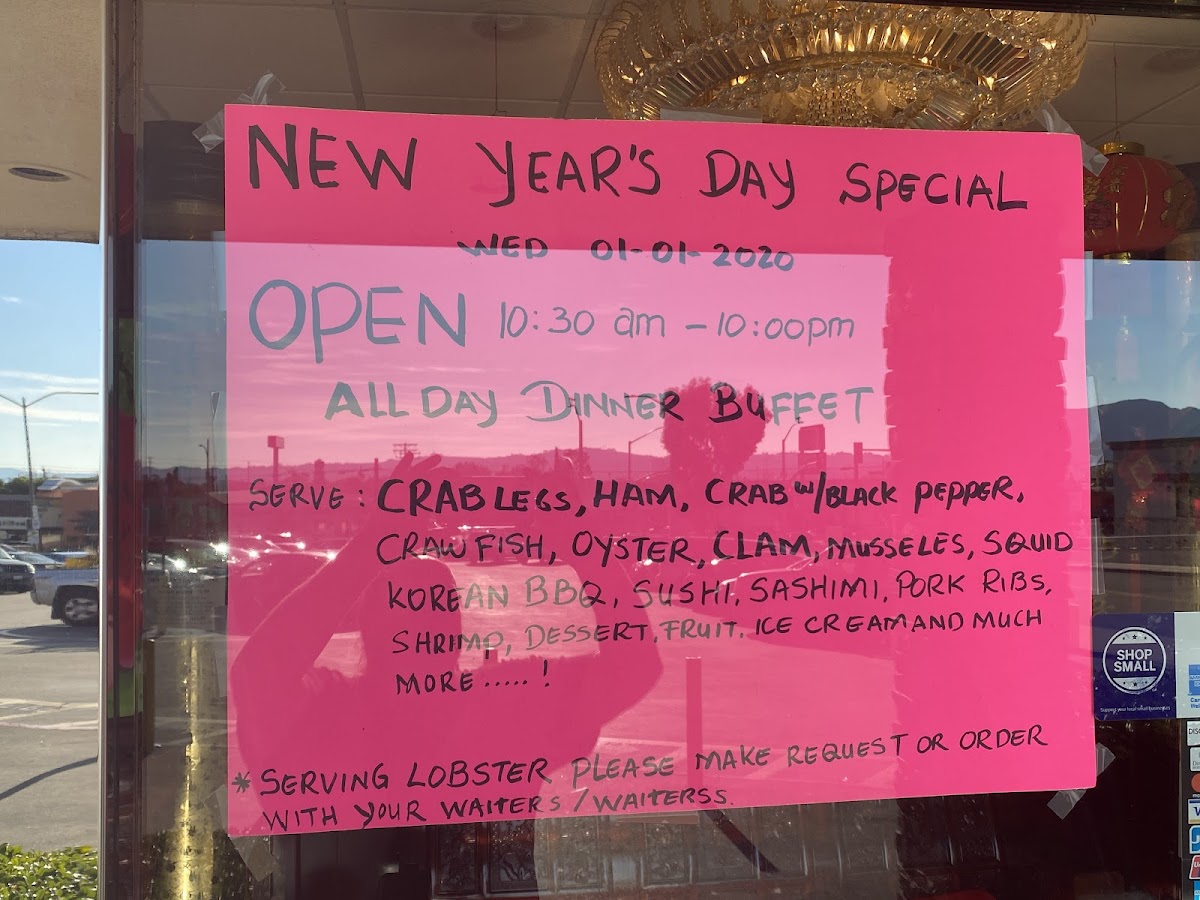 NEW YEAR'S DAY SPECIAL
WED 01-01-2020
OPEN 10:30 am - 10:00pm
ALL DAY DINNER BUFFET
SERVE: CRAB LEGS, HAM, CRAB W/BLACK PEPPER,
CRAW FISH, OYSTER, CLAM, MUSSELES, SQUID
KOREAN BBQ, SUSHI, SASHIMI, PORK RIBS,
SHRIMP, DESSERT, FRUIT. ICE CREAM AND MUCH
MORE.....!
* SERVING LOBSTER PLEASE MAKE REQUEST OR ORDER
WITH YOUR WAITERS/WAITERSS.
SHOP
SMALL